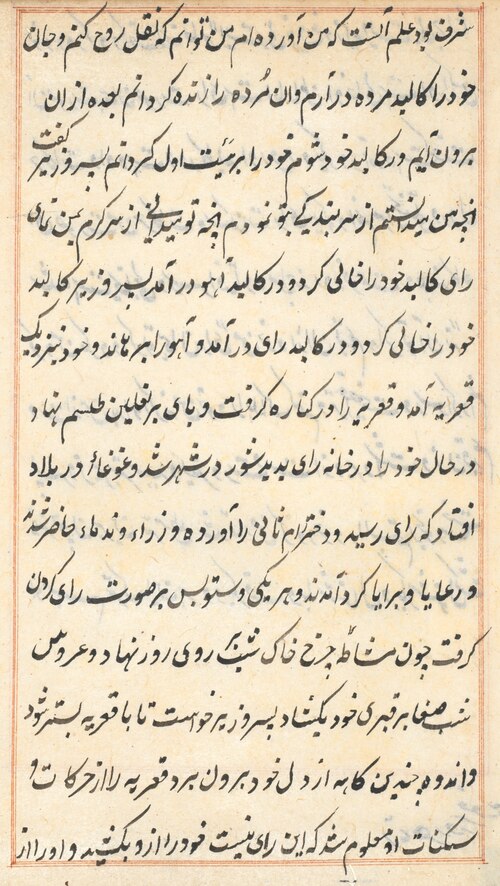 شرف بود علم آنست که من آورده ام من توانم که نقل روح کنم و جان
خود را کالبد مرده در آرم وان مرده را زنده کردانم بعده از ان
برون آیم و در کالبد خود شوم خود را بر هیئت اول کردانم پسر وزیر گفت
انچه من میدانستم از هنر بندیکی بتو نمودم انچه تو میدانی از هنر کرم بمن نمای
رای کالبد خود را خالی کرد و در کالبد آهو در آمد پسر وزیر کالبد
خود را خالی کرد و در کالبد رای در آمد و آهو را برماند و خود نیز نزدیک
قعریه آمد و قعریه را در کناره کرفت و پای بر نعلین طلسم نهاد
در حال خود را در خانه رای پدید شور در شهر شد و غوغا در بلاد
افتاد که رای رسید و دختر ام ثانی را آورده وزراء و ندماء حاضر شدند
و رعایا و برایا کرد آمدند و هر یکی دستوبس بر صورت رای کردن
کرفت چون مشاطه چرخ خاک شب بر روی روز نهاد و عروس
شب بر قبری خود بکشاد پسر وزیر خواست تا با قعریه بستر شود
و اندوه چندین کاهه از دل خود برون برد قعریه را از حرکات و
سکنات او معلوم شد که این رای نیست خود را از و بکشید و او را از